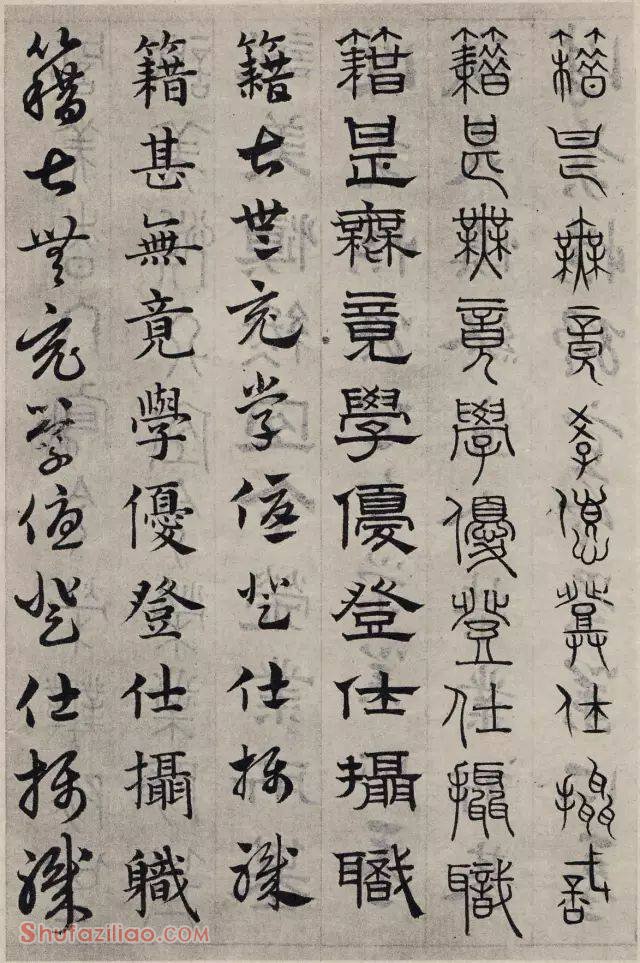 籍甚無竟學優登仕攝職
籍甚無竟學優登仕攝職
籍甚無竟學優登仕攝職
籍甚無竟學優登仕攝職
籍甚無竟學優登仕攝軄
籍甚無竟學優登仕攝職
Shufaziliao.COM